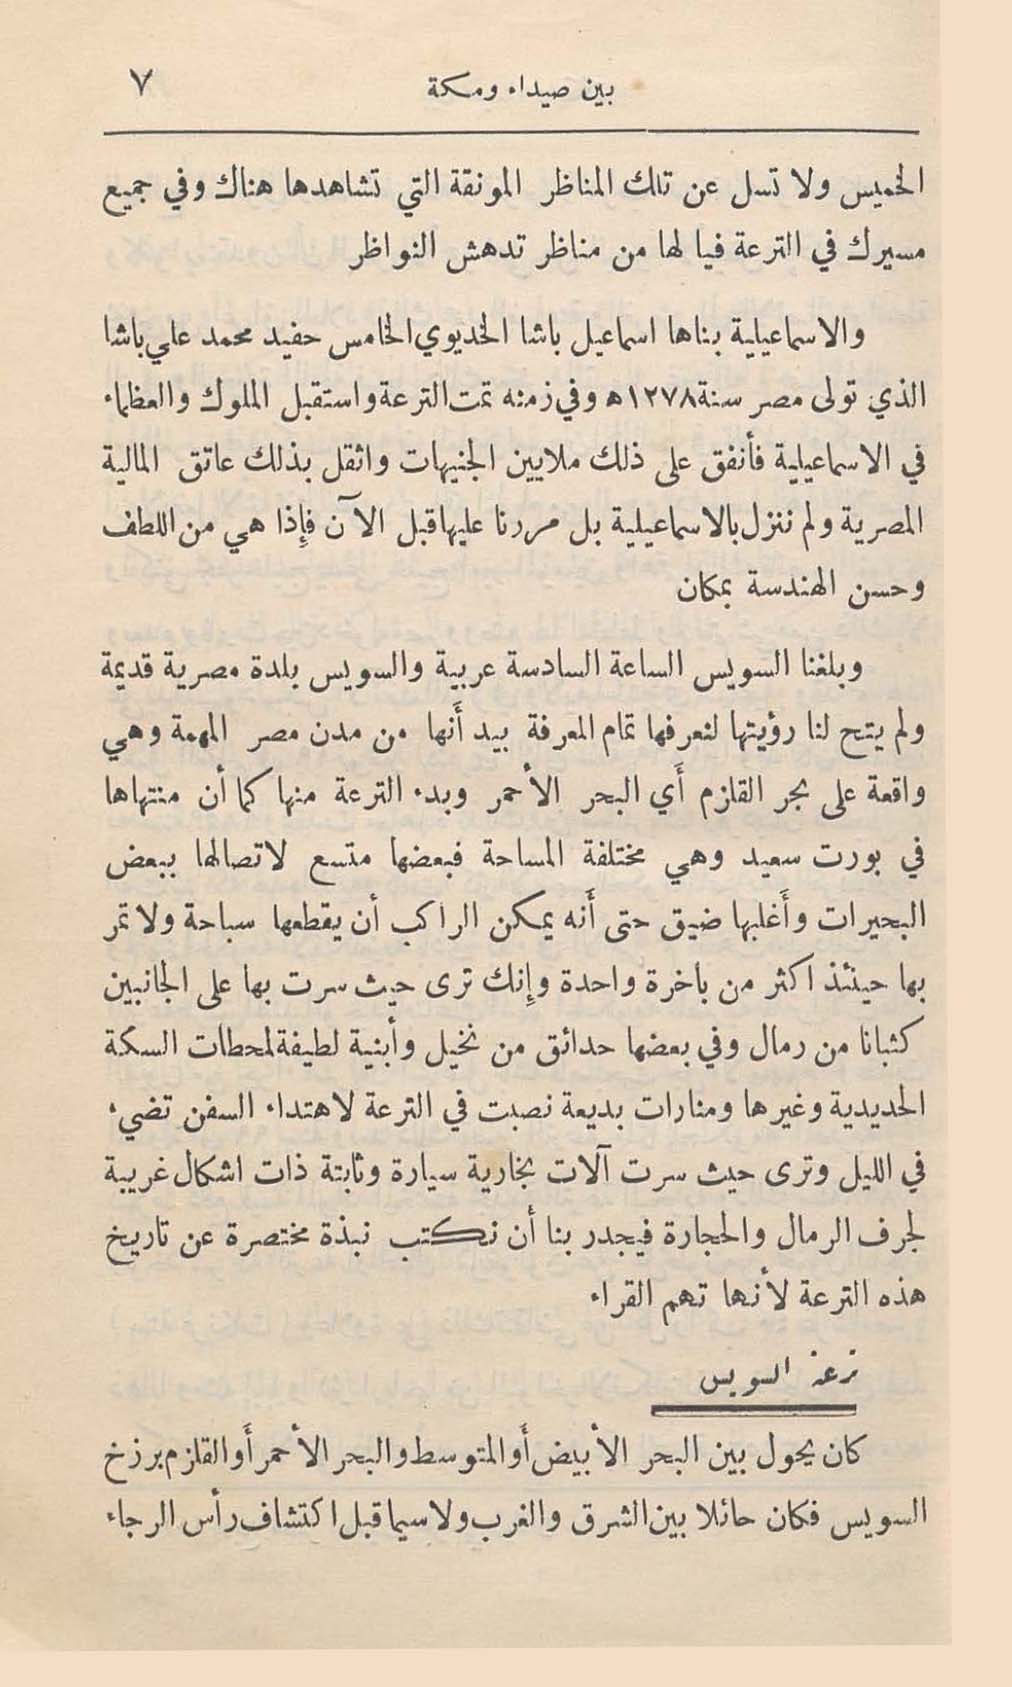 بين صيداء ومكة ٧
الخميس ولا تسل عن تلك المناظر المونقة التي تشاهدها هناك وفي جميع
مسيرك في الترعة فيا لها من مناظر تدهش النواظر
والاسماعيلية بناها اسماعيل باشا الخديوي الخامس حفيد محمد علي باشا
الذي تولى مصر سنة ١٢٧٨ﻫ وفي زمنه تمت الترعة واستقبل الملوك والعظماء
في الاسماعيلية فأنفق على ذلك ملايين الجنيهات واثقل بذلك عاتق المالية
المصرية ولم ننزل بالاسماعيلية بل مررنا عليها قبل الآن فإذا هي من اللطف
وحسن الهندسة بمكان
وبلغنا السويس الساعة السادسة عربية والسويس بلدة مصرية قديمة
ولم يتح لنا رؤيتها لنعرفها تمام المعرفة بيد أنها من مدن مصر المهمة وهي
واقعة على بحر القلزم أي البحر الأحمر وبدء الترعة منها كما أن منتهاها
في بورت سعيد وهي مختلفة المساحة فبعضها متسع لاتصالها ببعض
البحيرات وأغلبها ضيق حتى أنه يمكن الراكب أن يقطعها سباحة ولا تمر
بها حينئذ اكثر من باخرة واحدة وإنك ترى حيث سرت بها على الجانبين
كثبانا من رمال وفي بعضها حدائق من نخيل وأبنية لطيفة لمحطات السكة
الحديدية وغيرها ومنارات بديعة نصبت في الترعة لاهتداء السفن تضيء
في الليل وترى حيث سرت آلات بخارية سيارة وثابتة ذات اشكال غريبة
لجرف الرمال والحجارة فيجدر بنا أن نكتب نبذة مختصرة عن تاريخ
هذه الترعة لأنها تهم القراء
ترعة السويس
كان يحول بين البحر الأبيض أو المتوسط والبحر الأحمر أو القلزم برزخ
السويس فكان حائلا بين الشرق والغرب ولا سيما قبل اكتشاف رأس الرجاء